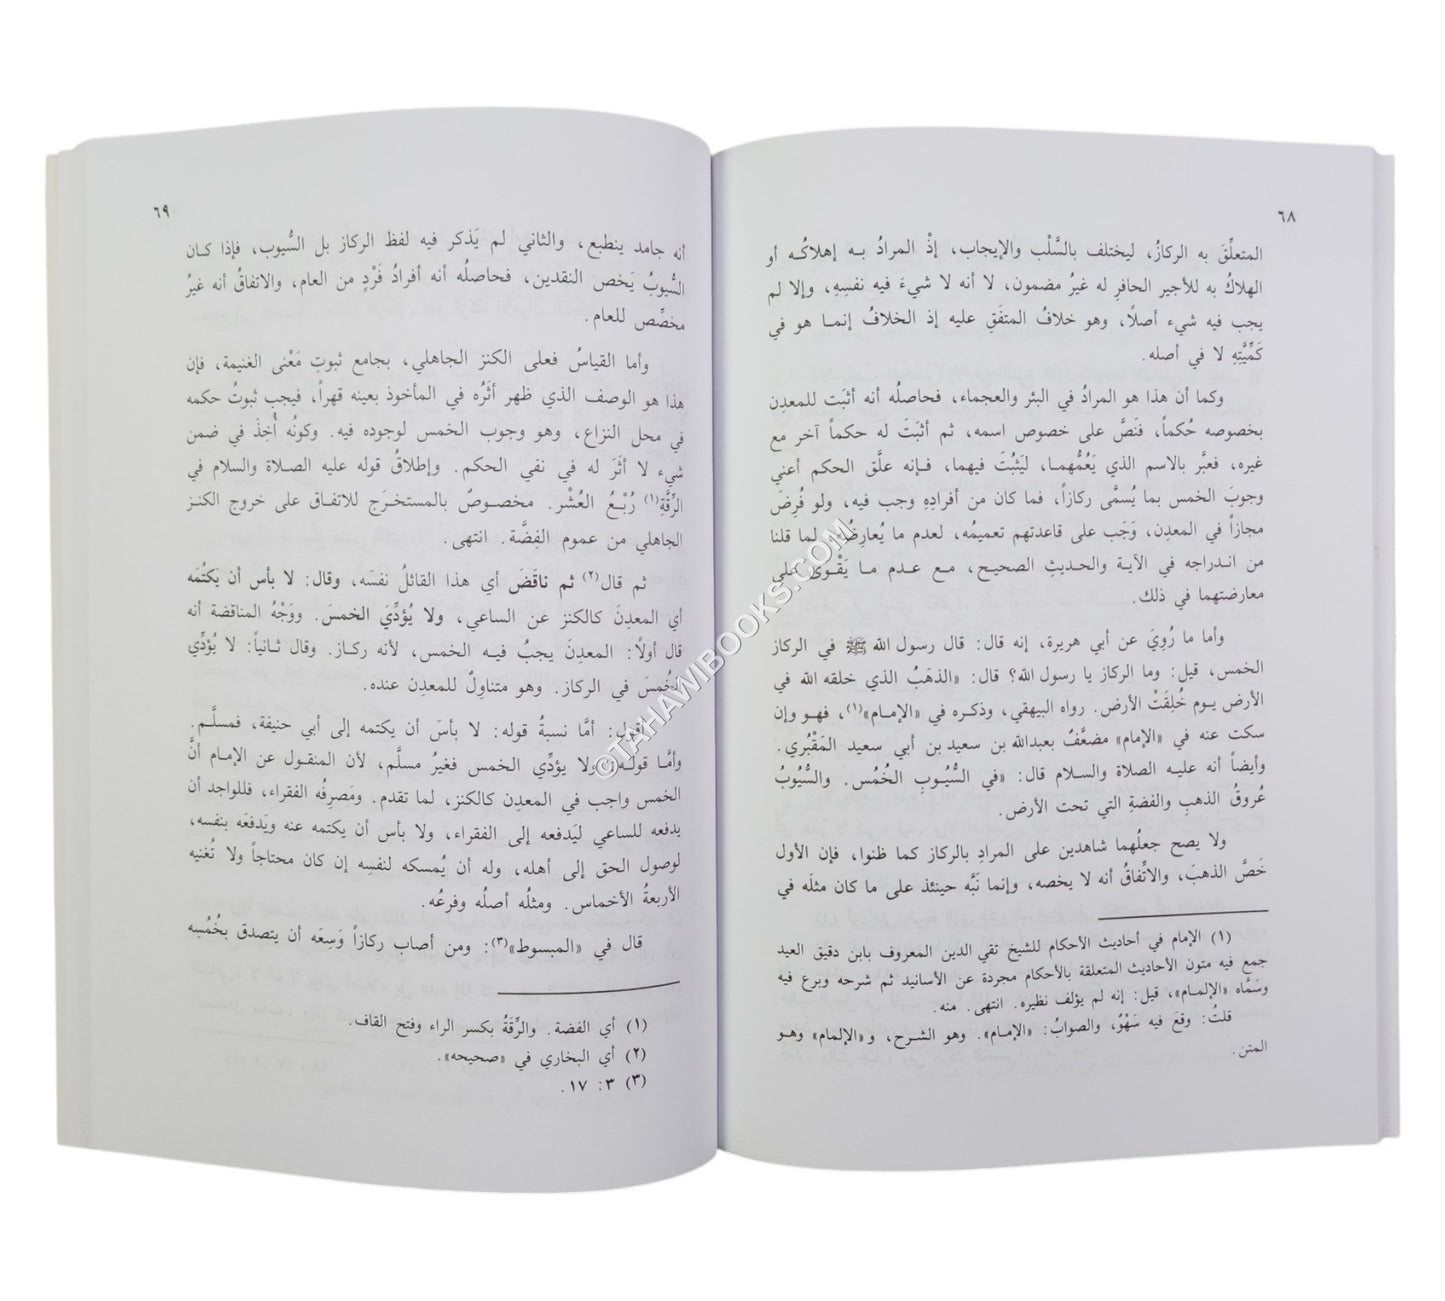 ٦٨
المتعلِّقَ به الركازُ، ليختلف بالسَّلْب والإيجاب، إذْ المرادُ به إهلاكُه أو
الهلاكُ به للأجير الحافرِ له غيرُ مضمون، لا أنه لا شيءَ فيه نفسِهِ، وإلا لم
يجب فيه شيء أصلًا، وهو خلافُ المتفَقِ عليه إذ الخلافُ إنما هو في
كَمِّيَّتِهِ لا في أصله.
وكما أن هذا هو المرادُ في البئر والعجماء، فحاصلُه أنه أثبَت للمعدِن
بخصوصه حُكماً، فنَصَّ على خصوص اسمه، ثم أثبَتَ له حكماً آخر مع
غيره، فعبَّر بالاسم الذي يَعُمُّهما، ليَثبُتَ فيهما، فإنه علَّق الحكم أعني
وجوبَ الخمس بما يُسمَّى ركازاً، فما كان من أفرادِهِ وجب فيه، ولو فُرِضَ
مجازاً في المعدِن، وَجَب على قاعدتهم تعميمُه، لعدم ما يُعارِضُه، لما قلنا
من اندراجه في الآية والحديثِ الصحيح، مع عدم ما يَقْوى على
معارضتهما في ذلك.
وأما ما رُوِيَ عن أبي هريرة، إنه قال: قال رسول الله ﷺ في الركاز
الخمس، قيل: وما الركاز يا رسول الله؟ قال: «الذهَبُ الذي خلقه الله في
الأرض يوم خُلِقَتْ الأرض. رواه البيهقي، وذكره في «الإمام»(١)، فهو وإن
سكت عنه في «الإمام» مضعَّفٌ بعبدالله بن سعيد بن أبي سعيد المَقْبُري.
وأيضاً أنه عليه الصلاة والسلام قال: «في السُّيُوبِ الخُمُس. والسُّيُوبُ
عُروقُ الذهبِ والفضةِ التي تحت الأرض.
ولا يصح جعلُهما شاهدين على المرادِ بالركاز كما ظنوا، فإن الأول
خَصَّ الذهبَ، والاتِّفاقُ أنه لا يخصه، وإنما نَبَّه حينئذ على ما كان مثلَه في
(١) الإمام في أحاديث الأحكام للشيخ تقي الدين المعروف بابن دقيق العيد
جمع فيه متون الأحاديث المتعلقة بالأحكام مجردة عن الأسانيد ثم شرحه وبرع فيه
وسَمَّاه «الإلمام»، قيل: إنه لم يؤلف نظيره. انتهى. منه.
قلتُ: وقعَ فيه سَهْوٌ، والصوابُ: «الإمام». وهو الشرح، و«الإلمام» وهو
المتن.
٦٩
أنه جامد ينطبع، والثاني لم يَذكر فيه لفظ الركاز بل السُّيوب، فإذا كان
السُّيوبُ يَخص النقدين، فحاصلُه أنه أفرادُ فَرْدٍ من العام، والاتفاقُ أنه غيرُ
مخصِّص للعام.
وأما القياسُ فعلى الكنز الجاهلي، بجامع ثبوتِ مَعْنى الغنيمة، فإن
هذا هو الوصف الذي ظهر أثَرُه في المأخوذ بعينه قهراً، فيجب ثبوتُ حكمه
في محل النزاع، وهو وجوب الخمس لوجوده فيه. وكونُه أُخِذَ في ضمن
شيء لا أثَرَ له في نفي الحكم. وإطلاقُ قوله عليه الصلاة والسلام في
الرِّقَّةِ(١) رُبْعُ العُشْر. مخصوصٌ بالمستخرَج للاتفاق على خروج الكنز
الجاهلي من عموم الفِضَّة. انتهى.
ثم قال(٢) ثم ناقَضَ أي هذا القائلُ نفسَه، وقال: لا بأس أن يَكتُمَه
أي المعدِنَ كالكنز عن الساعي، ولا يُؤدِّيَ الخمسَ. ووَجْهُ المناقضة أنه
قال أولاً: المعدِنَ يجبُ فيه الخمس، لأنه ركاز. وقال ثانياً: لا يُؤدِّي
الخُمسَ في الركاز. وهو متناوِلٌ للمعدِن عنده.
أقول: أمَّا نسبةُ قوله: لا بأسَ أن يكتمه إلى أبي حنيفة، فمسلَّم.
وأمَّا قوله: ولا يؤدِّي الخمس فغيرُ مسلَّم، لأن المنقول عن الإمام أنَّ
الخمس واجب في المعدِن كالكنز، لما تقدم. ومَصرِفُه الفقراء، فللواجد أن
يدفعه للساعي ليَدفعه إلى الفقراء، ولا بأس أن يكتمه عنه ويَدفعَه بنفسه،
لوصول الحق إلى أهله، وله أن يُمسكه لنفسِه إن كان محتاجاً ولا تُغنيه
الأربعةُ الأخماس. ومثلُه أصلُه وفرعُه.
قال في «المبسوط»(٣): ومن أصاب ركازاً وَسِعَه أن يتصدق بخُمُسِه
(١) أي الفضة. والرِّقَةُ بكسر الراء وفتح القاف.
(٢) أي البخاري في «صحيحه».
(٣) ٣: ١٧.
©TAHAWIBOOKS.COM